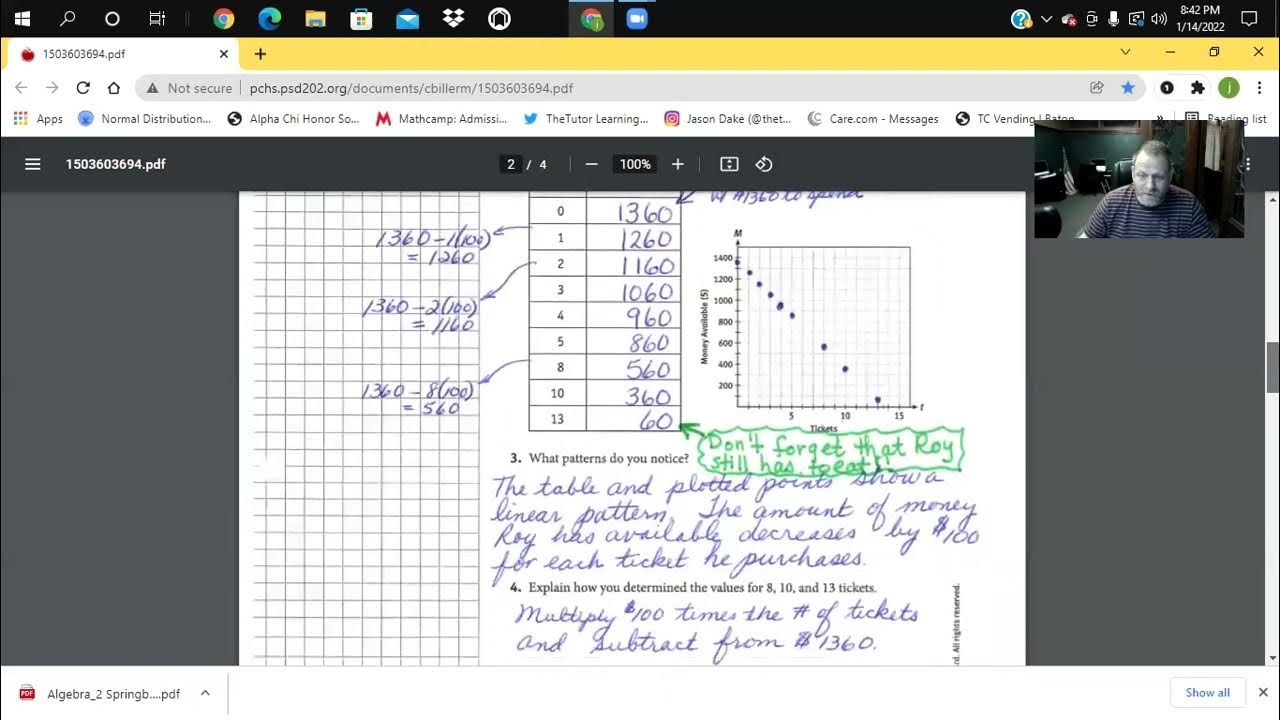 8:42 PM
1/14/2022
1503603694.pdf
Not secure | pchs.psd202.org/documents/cbillerm/1503603694.pdf
Apps Normal Distribution... Alpha Chi Honor So... Mathcamp: An Inssi... TheTutor Learning... Jason Dake (@thet... Care.com - Messages TC Vending | Baton » Reading list
1503603694.pdf 2 / 4 100%
w/ $1360 to spend
0 1360
1 1260
2 1160
3 1060
4 960
5 860
8 560
10 360
13 60
1360 - 1(100)
= 1260
1360 - 2(100)
= 1160
1360 - 8(100)
= 560
M
1400
1200
1000
800
600
400
200
Money Available ($)
5 10 15 t
Tickets
Don't forget that Roy
still has to eat!
3. What patterns do you notice?
The table and plotted points show a
linear pattern. The amount of money
Roy has available decreases by $100
for each ticket he purchases.
4. Explain how you determined the values for 8, 10, and 13 tickets.
Multiply $100 times the # of tickets
and subtract from $1360.
rd. All rights reserved.
Algebra_2 Springb....pdf
Show all